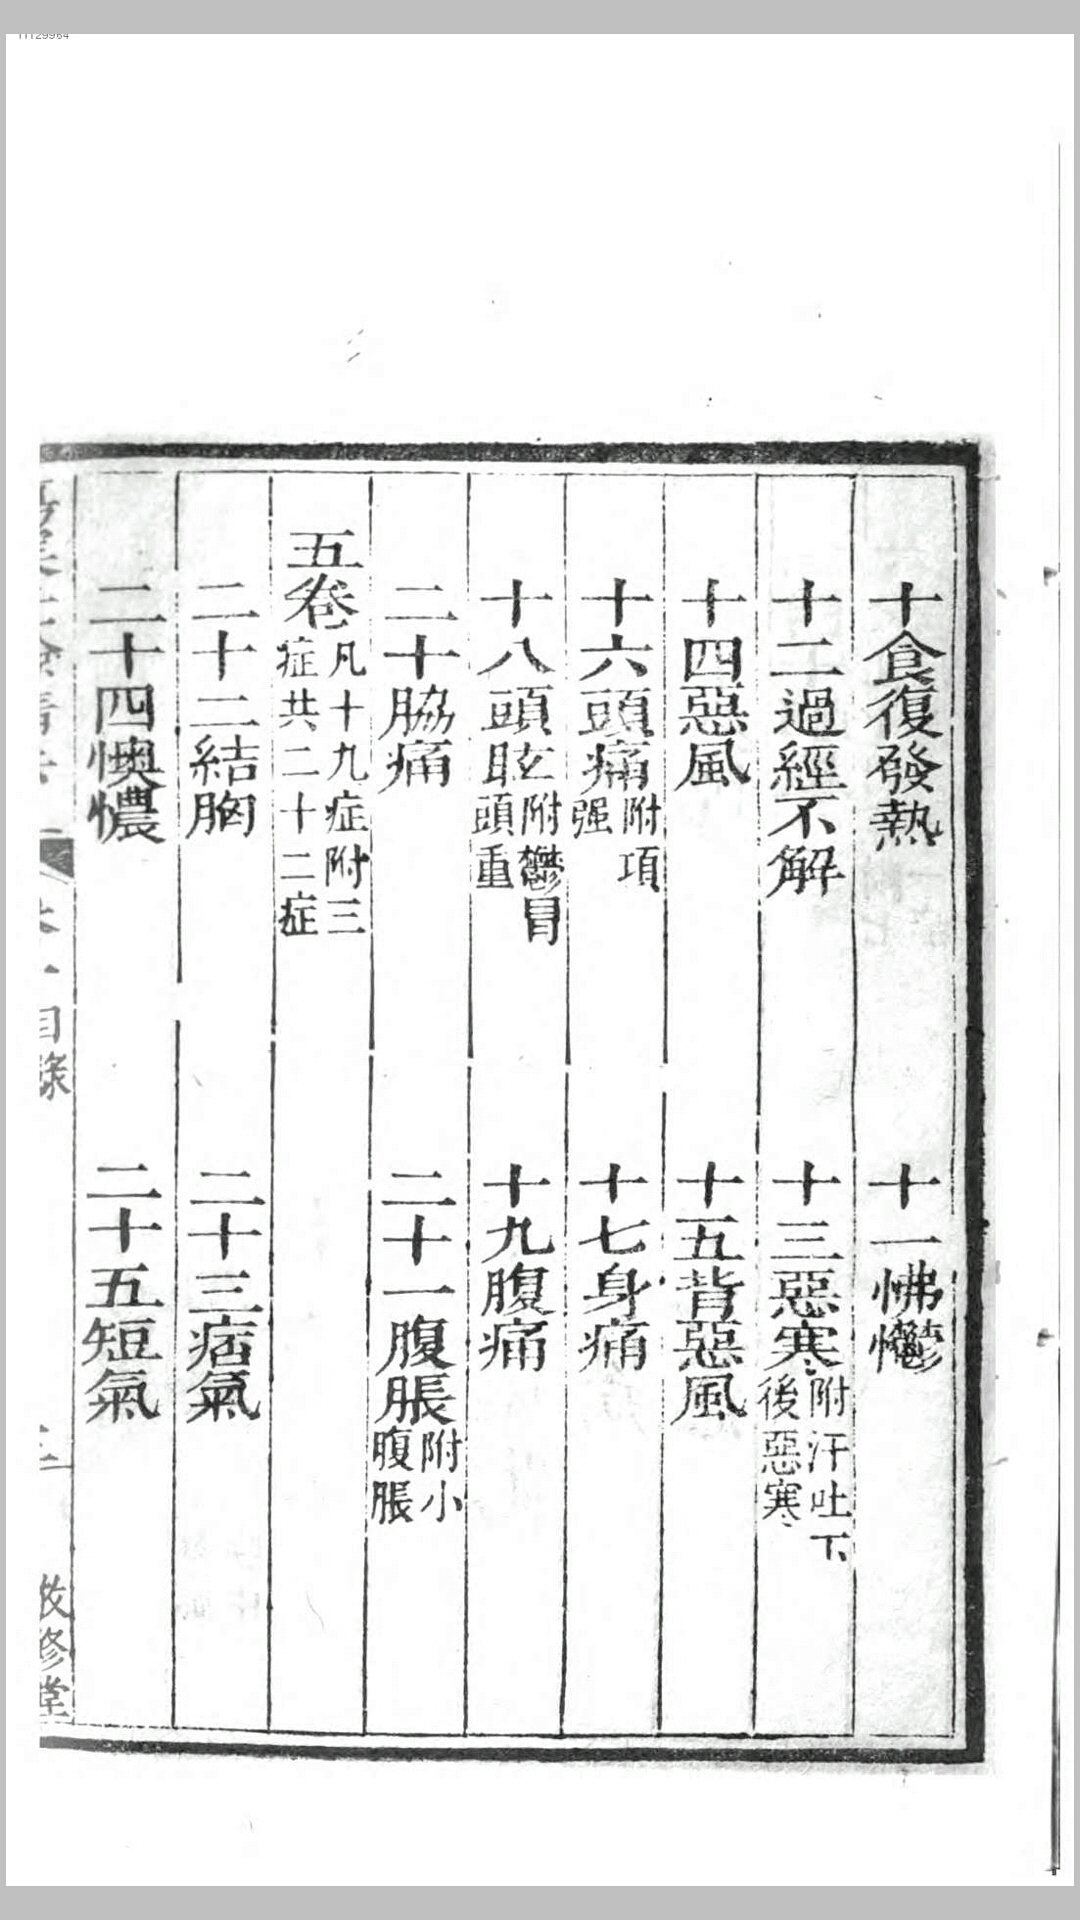 十食復發熱　十一怫鬱
十二過經不解　十三惡寒附汗吐下後惡寒
十四惡風　十五背惡風
十六頭痛附項强　十七身痛
十八頭眩附鬱冒頭重　十九腹痛
二十脇痛　二十一腹脹附小腹脹
五卷凡十九症附三症共二十二症
二十二結胸　二十三痞氣
二十四懊憹　二十五短氣
目錄
敬修堂